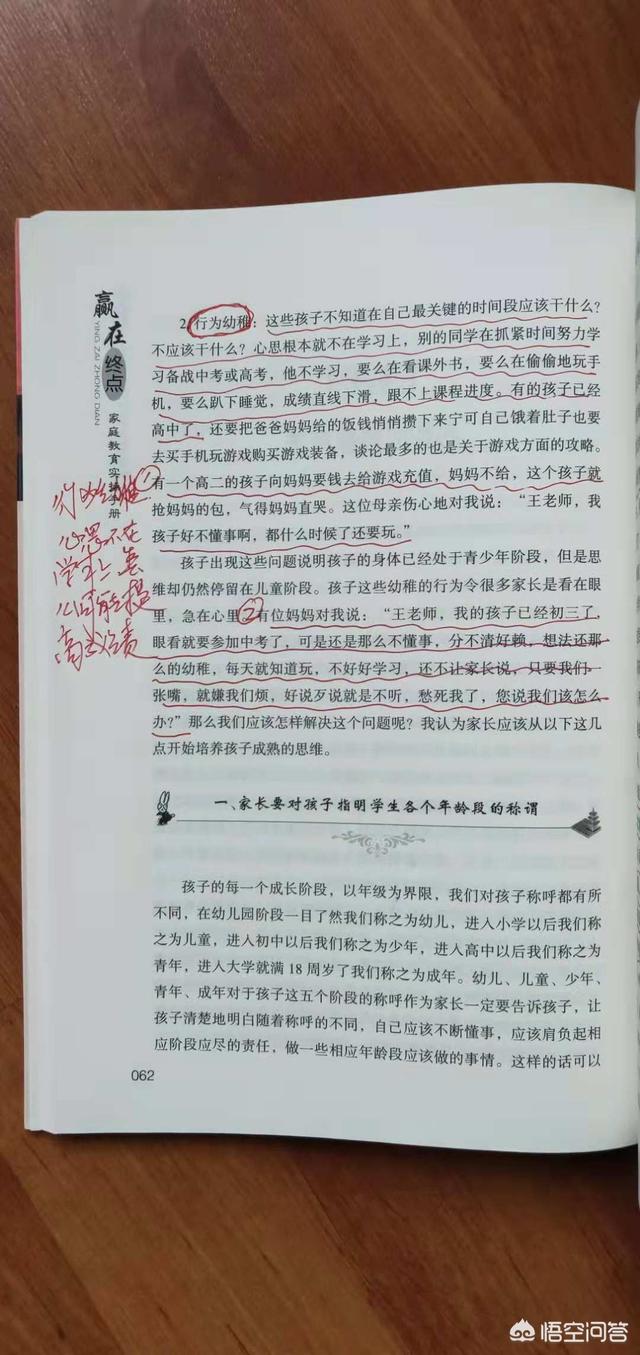 赢在终点
YING ZAI ZHONG DIAN
家庭教育实操手册
2.行为幼稚：这些孩子不知道在自己最关键的时间段应该干什么？
不应该干什么？心思根本就不在学习上，别的同学在抓紧时间努力学
习备战中考或高考，他不学习，要么在看课外书，要么在偷偷地玩手
机，要么趴下睡觉，成绩直线下滑，跟不上课程进度。有的孩子已经
高中了，还要把爸爸妈妈给的饭钱悄悄攒下来宁可自己饿着肚子也要
去买手机玩游戏购买游戏装备，谈论最多的也是关于游戏方面的攻略。
①
有一个高二的孩子向妈妈要钱去给游戏充值，妈妈不给，这个孩子就
抢妈妈的包，气得妈妈直哭。这位母亲伤心地对我说：“王老师，我
孩子好不懂事啊，都什么时候了还要玩。”
孩子出现这些问题说明孩子的身体已经处于青少年阶段，但是思
维却仍然停留在儿童阶段。孩子这些幼稚的行为令很多家长是看在眼
里，急在心里②有位妈妈对我说：“王老师，我的孩子已经初三了，
眼看就要参加中考了，可是还是那么不懂事，分不清好赖，想法还那
么的幼稚，每天就知道玩，不好好学习，还不让家长说，只要我们一
张嘴，就嫌我们烦，好说歹说就是不听，愁死我了，您说我们该怎么
办？”那么我们应该怎样解决这个问题呢？我认为家长应该从以下这几
点开始培养孩子成熟的思维。
一、家长要对孩子指明学生各个年龄段的称谓
孩子的每一个成长阶段，以年级为界限，我们对孩子称呼都有所
不同，在幼儿园阶段一目了然我们称之为幼儿，进入小学以后我们称
之为儿童，进入初中以后我们称之为少年，进入高中以后我们称之为
青年，进入大学就满 18 周岁了我们称之为成年。幼儿、儿童、少年、
青年、成年对于孩子这五个阶段的称呼作为家长一定要告诉孩子，让
孩子清楚地明白随着称呼的不同，自己应该不断懂事，应该肩负起相
应阶段应尽的责任，做一些相应年龄段应该做的事情。这样的话可以
062
悟空问答